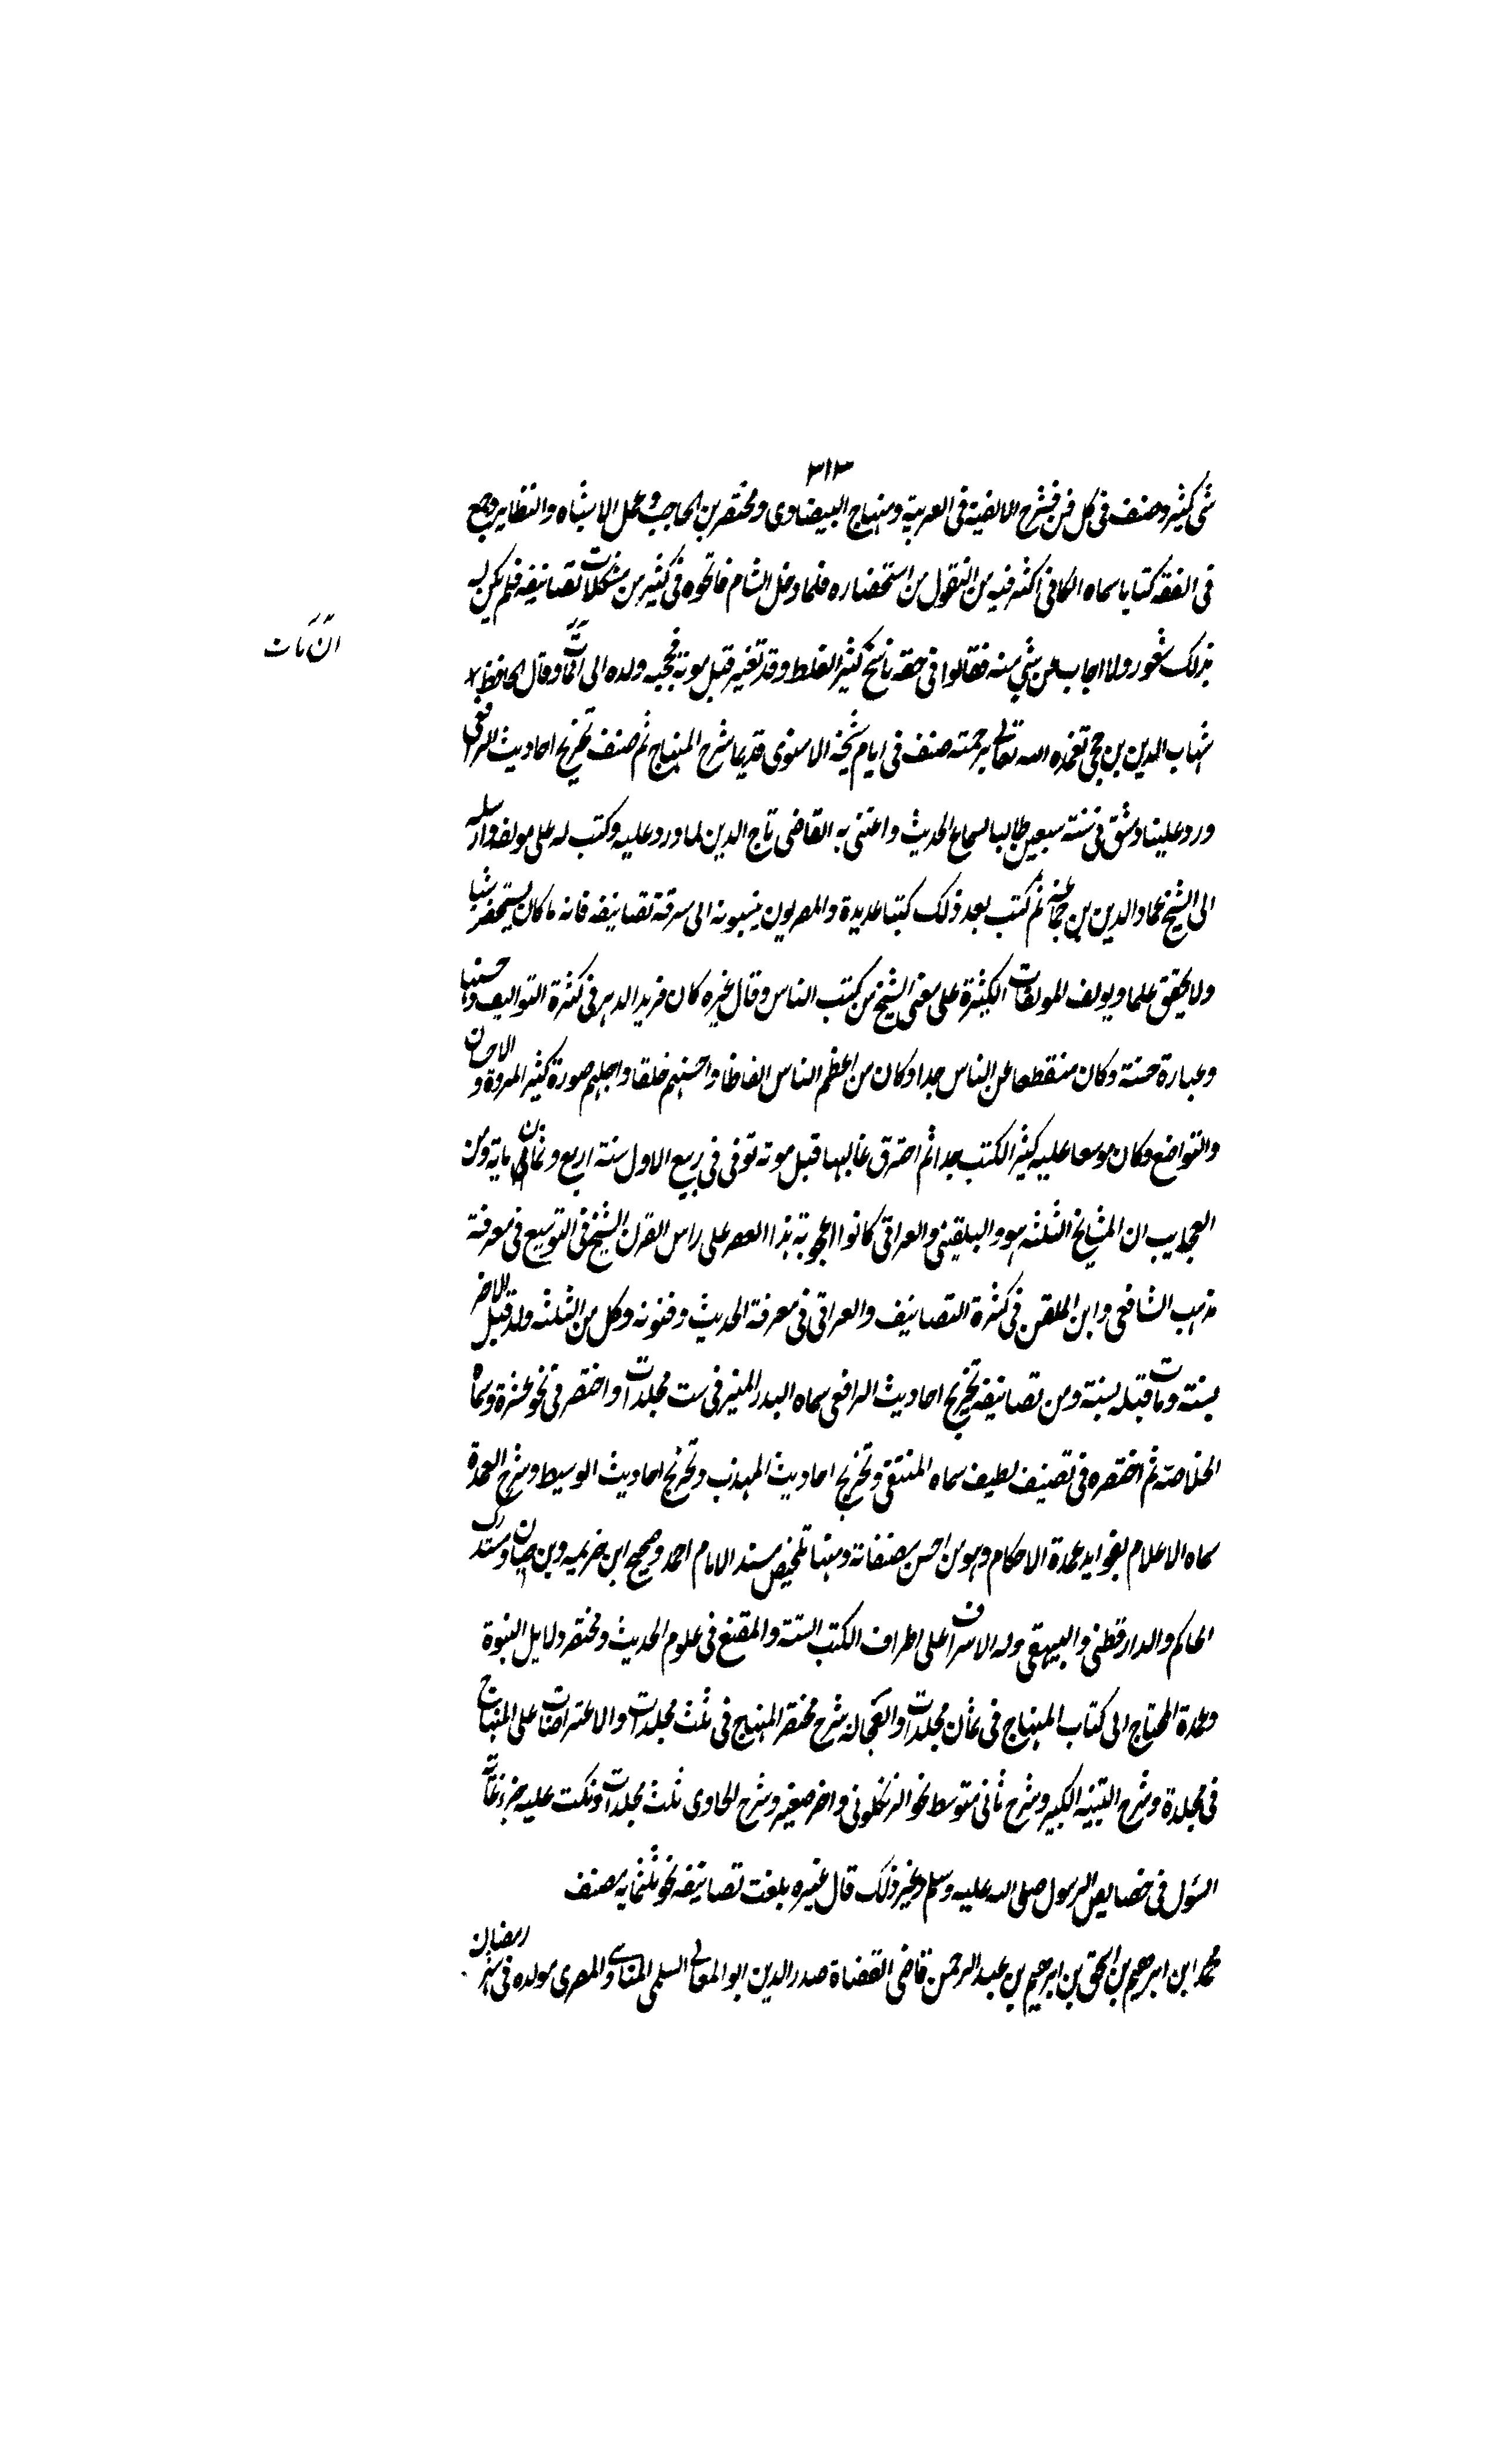 ٣١٣
شئ كثير وصنف فى كل فن فشرح الالفية فى العربية ومنهاج البيضاوى ومختصر بن الحاجب وعمل الاشباه والنظاير وجمع
فى الفقه كتابا سماه الكافى اكثر فيه من النقول من استحضاره فلما دخل الشام فاتحوه فى كثير من مشكلات تصانيفه فلم يكن له
بذلك شعور ولا اجاب عن شئ منه فقالوا فى حقه ناسخ كثير الغلط وقد تغير قبل موته فحجبه ولده الى ان مات وقال الحافظ
ان مات
شهاب الدين بن حجى تغمده الله تعالى برحمته صنف فى ايام شيخه الاسنوى قديما شرح المنهاج ثم صنف تخريج احاديث الرافعى
ورد علينا دمشق فى سنة سبعين طالبا لسماع الحديث واعتنى به القاضى تاج الدين لما ورد عليه وكتب له على مولفه وارسله
الى الشيخ عماد الدين بن جماعة ثم كتب بعد ذلك كتبا عديدة والمصريون ينسبونه الى سرقة تصانيفه فانه ما كان يستحضر شيا
ولا يحقق علما ويولف المولفات الكثيرة على معنى الشيخ من كتب الناس وقال غيره كان فريد الدهر فى كثرة التواليف وحسنها
وعبارة حسنة وكان منقطعا عن الناس جدا وكان من اعظم الناس الفاظا واحسنهم خلقا واجملهم صورة كثير المروة والاحسان
والتواضع وكان موسعا عليه كثير الكتب جدا ثم احترق غالبها قبل موته توفى فى ربيع الاول سنة اربع وثمان ماية ومن
العجايب ان المشايخ الثلثه هو والبلقينى والعراقى كانوا اعجوبة هذا العصر على راس القرن الشيخ فى التوسع فى معرفة
مذهب الشافعى وابن الملقن فى كثرة التصانيف والعراقى فى معرفة الحديث وفنونه وكل من الثلثه ولد قبل الاخر
بسنة ومات قبله بسنة ومن تصانيفه تخريج احاديث الرافعى سماه البدر المنير فى ست مجلدات واختصر فى نحو عشرة وسماه
الخلاصة ثم اختصره فى تصنيف لطيف سماه المنتقى وتخريج احاديث المهذب وتخريج احاديث الوسيط وشرح العمدة
سماه الاعلام بفوايد عمدة الاحكام وهو من احسن مصنفاته ومنها تلخيص مسند الامام احمد وصحيح ابن خزيمه وبن حبان ومستدرك
الحاكم والدارقطنى والبيهقى وله الاشراف على اطراف الكتب الستة والمقنع فى علوم الحديث ومختصر دلايل النبوة
وعمدة المحتاج الى كتاب المنهاج فى ثمان مجلدات والعجاله شرح مختصر المنهاج فى ثلث مجلدات والاعتراضات على المنهاج
فى مجلدة وشرح التنبيه الكبير وشرح ثانى متوسط نحو الزنكلونى واخر صغير وشرح الحاوى ثلث مجلدات ونكت عليه جزء غاية
السؤل فى خصايص الرسول صلى الله عليه وسلم وغير ذلك قال غيره بلغت تصانيفه نحو ثلثمايه مصنف
محمد ابن ابرهيم بن اسحق بن ابرهيم بن عبد الرحمن قاضى القضاة صدر الدين ابو المعالى السلمى المناوى المصرى مولده فى شهر رمضان